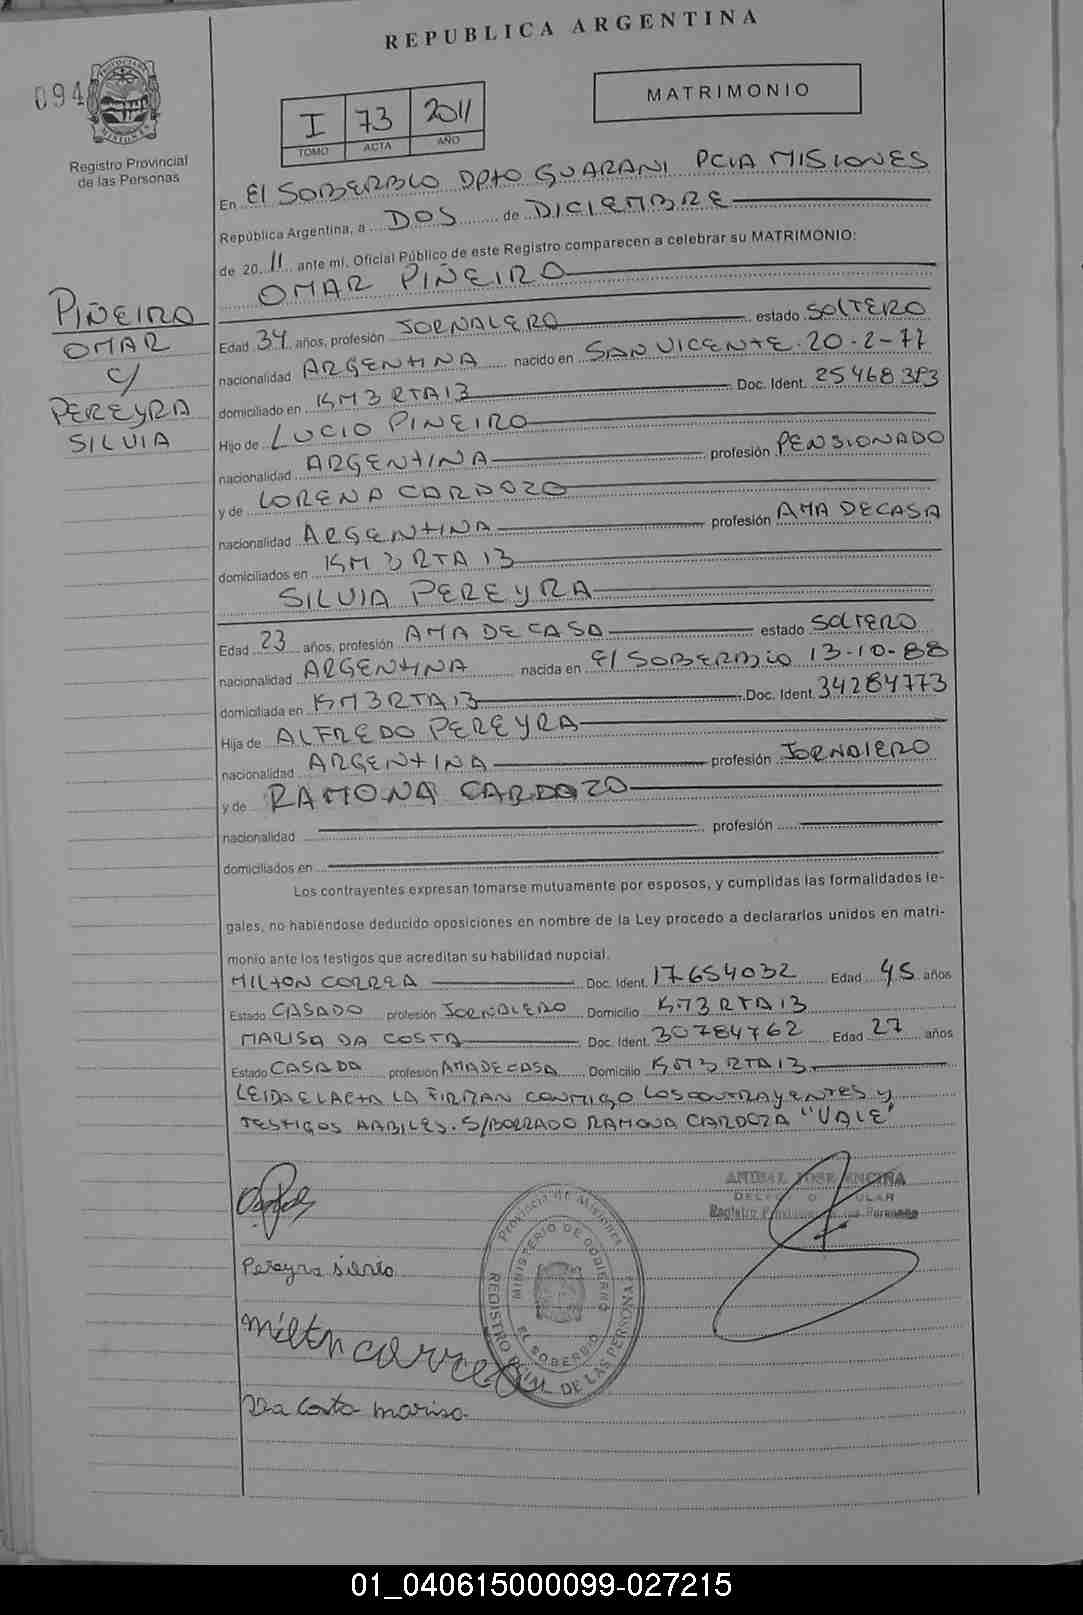 REPUBLICA ARGENTINA
094
PROVINCIA DE MISIONES
Registro Provincial
de las Personas
I 73 2011
TOMO ACTA AÑO
MATRIMONIO
En El SOBERBIO DPTO GUARANI PCIA MISIONES
República Argentina, a DOS de DICIEMBRE
de 2011 ante mí, Oficial Público de este Registro comparecen a celebrar su MATRIMONIO:
OMAR PIÑEIRO
PIÑEIRO
OMAR
c/
PEREYRA
SILVIA
Edad 34 años, profesión JORNALERO estado SOLTERO
nacionalidad ARGENTINA nacido en SAN VICENTE 20-2-77
domiciliado en KM3 RTA13 Doc. Ident. 25468393
Hijo de LUCIO PIÑEIRO
nacionalidad ARGENTINA profesión PENSIONADO
y de LORENA CARDOZO
nacionalidad ARGENTINA profesión AMA DE CASA
domiciliados en KM 3 RTA 13
SILVIA PEREYRA
Edad 23 años, profesión AMA DE CASA estado SOLTERO
nacionalidad ARGENTINA nacida en El SOBERBIO 13-10-88
domiciliada en KM3RTA13 Doc. Ident. 34284773
Hija de ALFREDO PEREYRA
nacionalidad ARGENTINA profesión JORNALERO
y de RAMONA CARDOZO
nacionalidad profesión
domiciliados en
Los contrayentes expresan tomarse mutuamente por esposos, y cumplidas las formalidades le-
gales, no habiéndose deducido oposiciones en nombre de la Ley procedo a declararlos unidos en matri-
monio ante los testigos que acreditan su habilidad nupcial.
MILTON CORREA Doc. Ident. 17654032 Edad 45 años
Estado CASADO profesión JORNALERO Domicilio KM3 RTA13
MARISA DA COSTA Doc. Ident. 30784762 Edad 27 años
Estado CASADA profesión AMA DE CASA Domicilio KM3 RTA13
LEIDA EL ACTA LA FIRMAN CONMIGO LOS CONTRAYENTES Y
TESTIGOS HABILES. S/BORRADO RAMONA CARDOZA "VALE"
ANIBAL JOSE ENCINA
Registro Provincial de las Personas
Provincia de Misiones
MINISTERIO DE GOBIERNO
EL SOBERBIO
REGISTRO PROVINCIAL DE LAS PERSONAS
Pereyra silvia
milton correa
Da Costa marisa
01_040615000099-027215